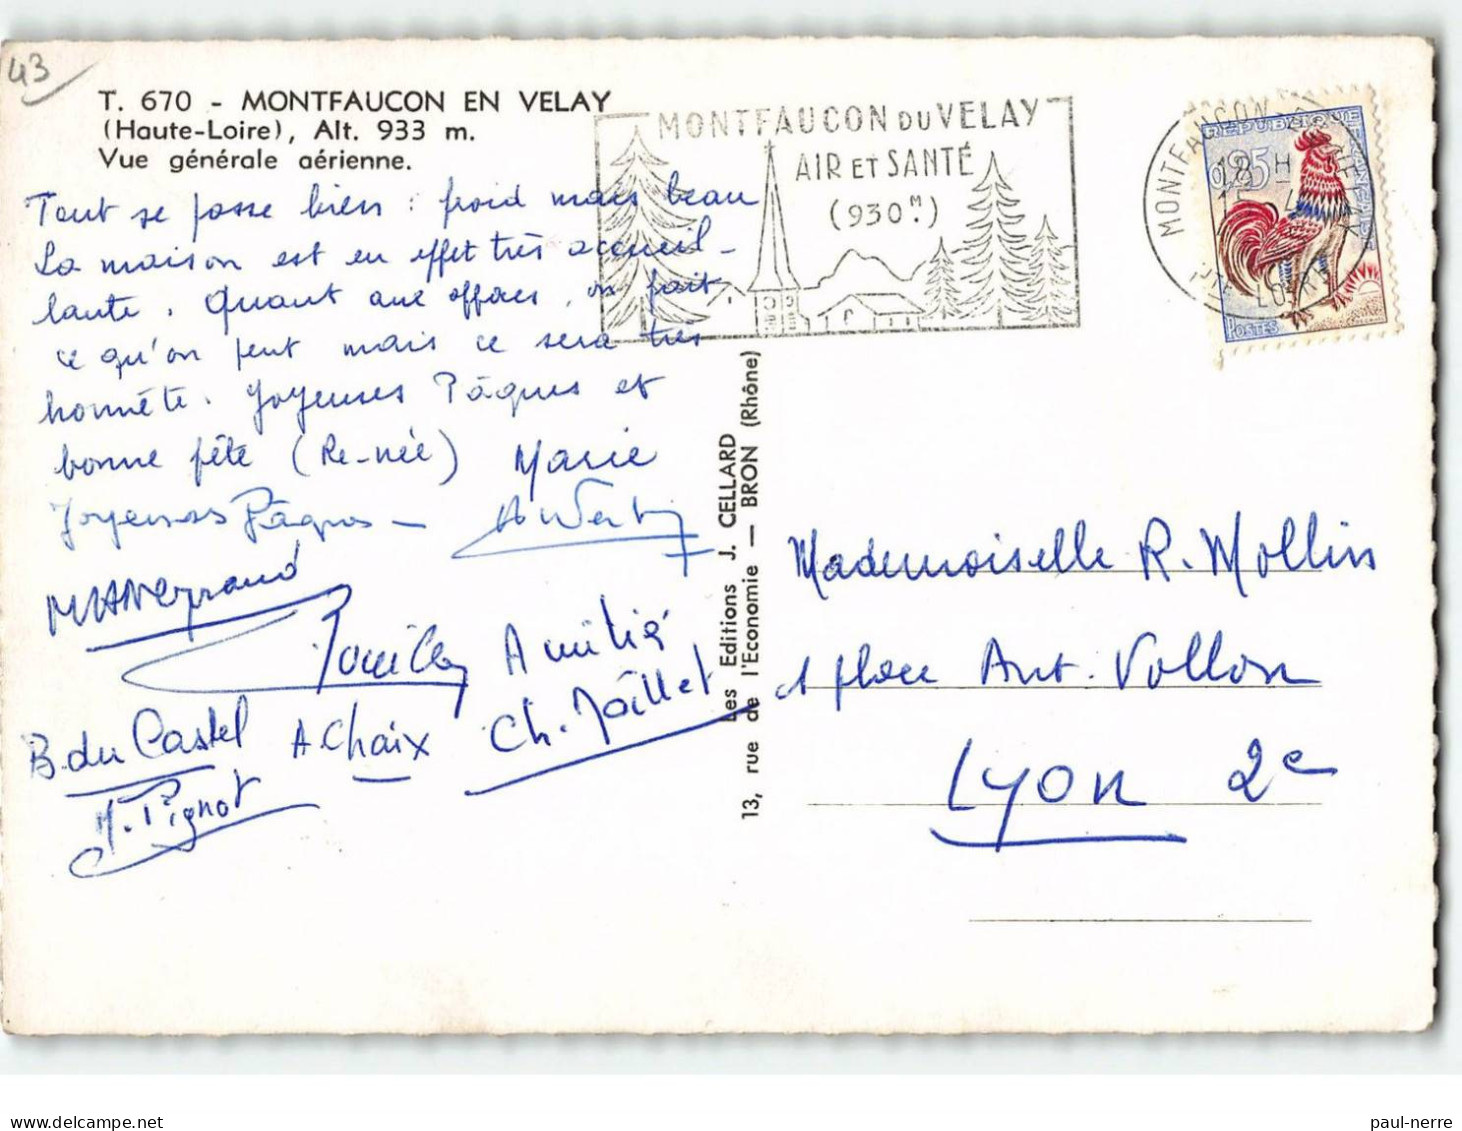 43
T. 670 - MONTFAUCON EN VELAY
(Haute-Loire), Alt. 933 m.
Vue générale aérienne.
MONTFAUCON DU VELAY
AIR ET SANTÉ
(930 M.)
MONTFAUCON EN VELAY
18 H
HTE LOIRE
REPUBLIQUE FRANCAISE
0,25
POSTES
Tout se passe bien : froid mais beau
La maison est en effet très accueil-
lante. Quant aux offices, on fait
ce qu'on peut mais ce sera très
honnête. Joyeuses Pâques et
bonne fête (Re-née) Marie
Joyeuses Pâques -
Amitié
B. du Castel A. Chaix Ch. Jaillet
M. Pignot
Les Editions J. CELLARD
13, rue de l'Economie — BRON (Rhône)
Mademoiselle R. Mollin
1 place Ant. Vollon
Lyon 2e
paul-nerre